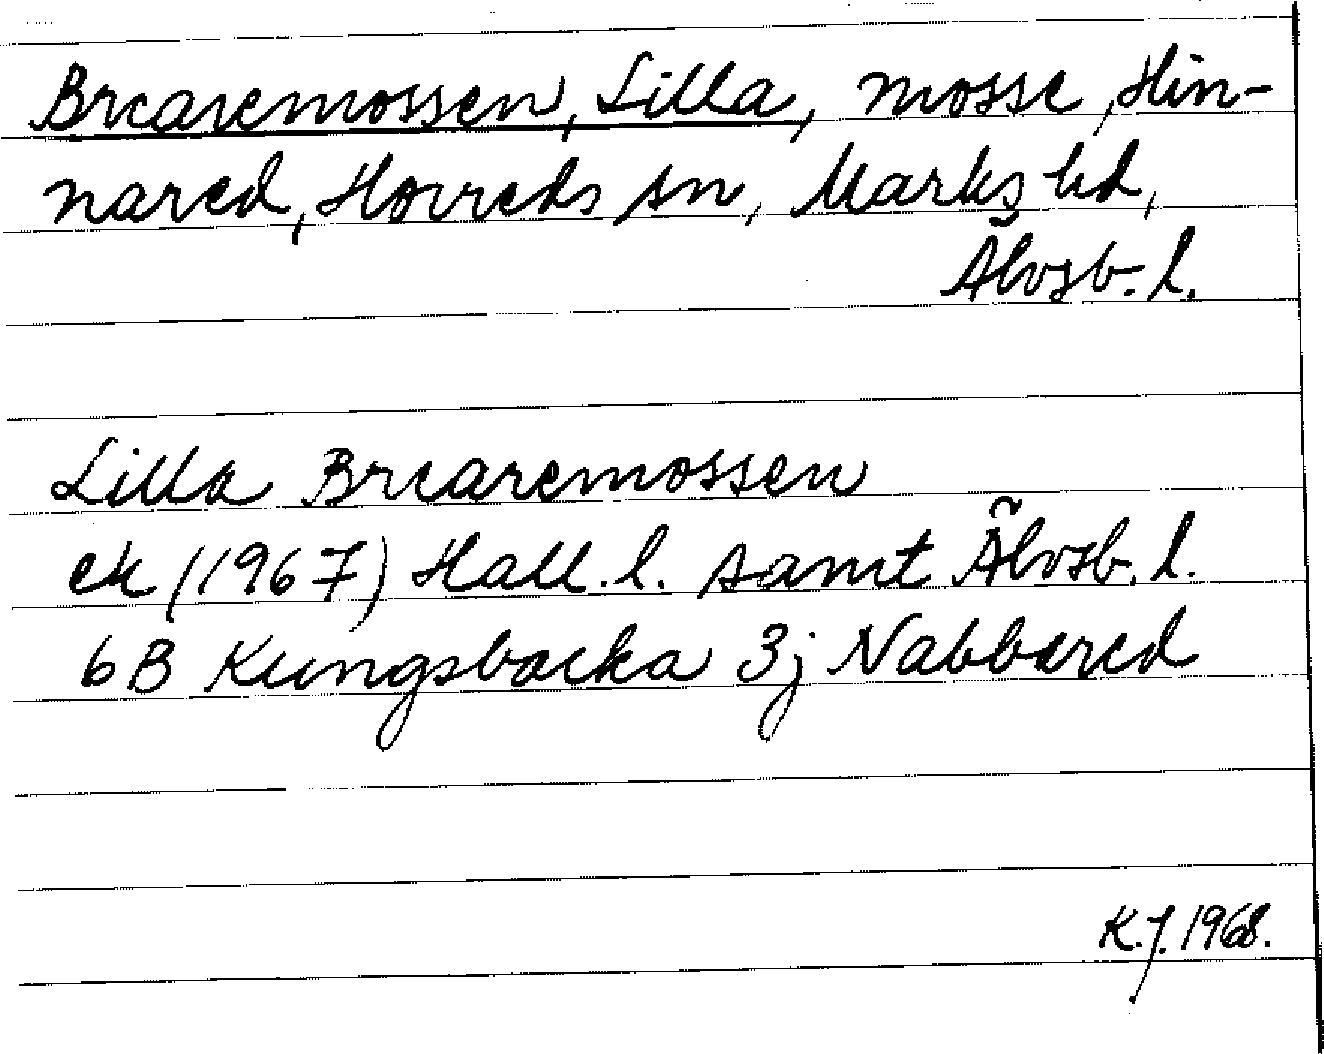 Brearemossen, Lilla, mosse, Hin-
nared, Horreds sn, Marks hd,
Älvsb. l.
Lilla Brearemossen
ek (1967) Hall. l. samt Älvsb. l.
6B Kungsbacka 3j Nabbared
K.J. 1968.